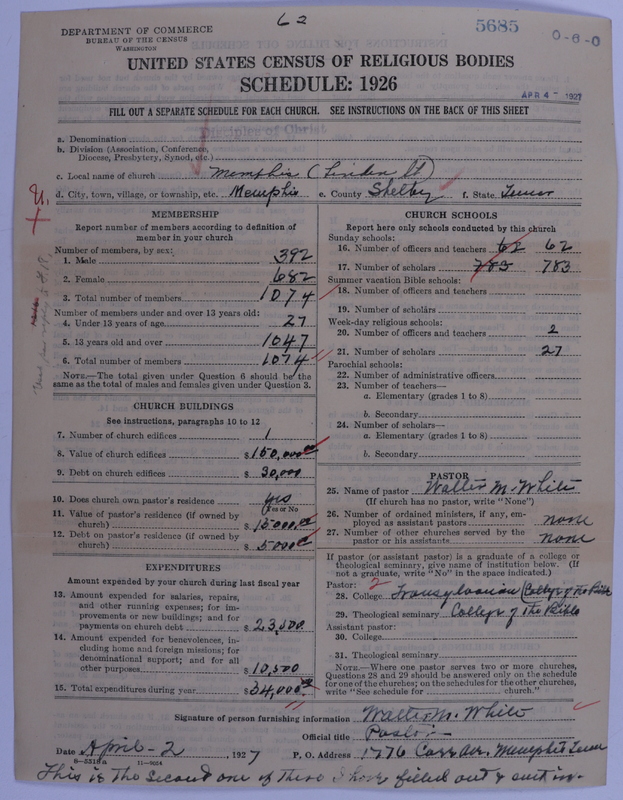 62
5685
0-6-0
DEPARTMENT OF COMMERCE
BUREAU OF THE CENSUS
WASHINGTON
UNITED STATES CENSUS OF RELIGIOUS BODIES
SCHEDULE: 1926
APR 4 - 1927
FILL OUT A SEPARATE SCHEDULE FOR EACH CHURCH. SEE INSTRUCTIONS ON THE BACK OF THIS SHEET
Disciples of Christ
a. Denomination
b. Division (Association, Conference, Diocese, Presbytery, Synod, etc.)
c. Local name of church Memphis (Linden St)
d. City, town, village, or township, etc. Memphis e. County Shelby f. State Tenn
U.
MEMBERSHIP
Report number of members according to definition of
member in your church
Number of members, by sex:
1. Male 392
2. Female 682
3. Total number of members 1074
Number of members under and over 13 years old:
4. Under 13 years of age 27
5. 13 years old and over 1047
6. Total number of members 1074
NOTE.—The total given under Question 6 should be the
same as the total of males and females given under Question 3.
CHURCH BUILDINGS
See instructions, paragraphs 10 to 12
7. Number of church edifices 1
8. Value of church edifices $150,000.00
9. Debt on church edifices $30,000
10. Does church own pastor's residence yes
(Yes or No)
11. Value of pastor's residence (if owned by
church) $15000.00
12. Debt on pastor's residence (if owned by
church) $5000.00
EXPENDITURES
Amount expended by your church during last fiscal year
13. Amount expended for salaries, repairs,
and other running expenses; for im-
provements or new buildings; and for
payments on church debt $23,500
14. Amount expended for benevolences, in-
cluding home and foreign missions; for
denominational support; and for all
other purposes $10,500
15. Total expenditures during year $34,000.00
CHURCH SCHOOLS
Report here only schools conducted by this church
Sunday schools:
16. Number of officers and teachers 62 62
17. Number of scholars 783 783
Summer vacation Bible schools:
18. Number of officers and teachers
19. Number of scholars
Week-day religious schools:
20. Number of officers and teachers 2
21. Number of scholars 27
Parochial schools:
22. Number of administrative officers
23. Number of teachers—
a. Elementary (grades 1 to 8)
b. Secondary
24. Number of scholars—
a. Elementary (grades 1 to 8)
b. Secondary
PASTOR
25. Name of pastor Walter M. White
(If church has no pastor, write "None")
26. Number of ordained ministers, if any, em-
ployed as assistant pastors none
27. Number of other churches served by the
pastor or his assistants none
If pastor (or assistant pastor) is a graduate of a college or
theological seminary, give name of institution below. (If
not a graduate, write "No" in the space indicated.)
Pastor: 2
28. College Transylvanian (College of the Bible
29. Theological seminary College of the Bible
Assistant pastor:
30. College
31. Theological seminary
NOTE.—Where one pastor serves two or more churches,
Questions 28 and 29 should be answered only on the schedule
for one of the churches; on the schedules for the other churches,
write "See schedule for church."
Signature of person furnishing information Walter M. White
Official title Pastor
Date April - 2, 1927 P. O. Address 1776 Carr Ave. Memphis Tenn
8-5519a 11-9014
This is the second one of these I have filled out & sent in.